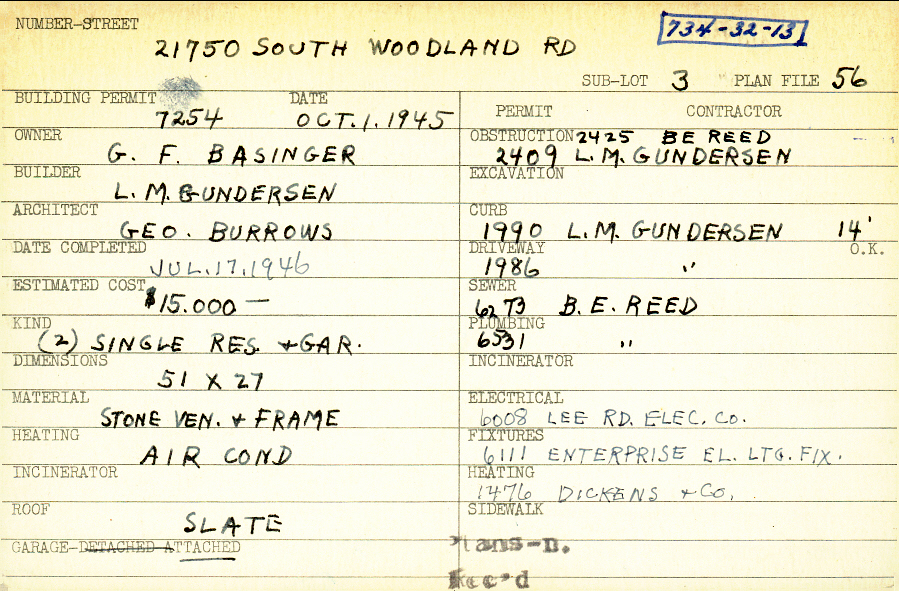 NUMBER-STREET
21750 SOUTH WOODLAND RD
734-32-13
SUB-LOT 3 PLAN FILE 56
BUILDING PERMIT 7254 DATE OCT.1.1945
OWNER G. F. BASINGER
BUILDER L. M. GUNDERSEN
ARCHITECT GEO. BURROWS
DATE COMPLETED JUL.17.1946
ESTIMATED COST $15.000 —
KIND (2) SINGLE RES. + GAR.
DIMENSIONS 51 X 27
MATERIAL STONE VEN. + FRAME
HEATING AIR COND
INCINERATOR
ROOF SLATE
GARAGE-DETACHED-ATTACHED
PERMIT CONTRACTOR
OBSTRUCTION 2425 BE REED
2409 L.M. GUNDERSEN
EXCAVATION
CURB 1990 L.M. GUNDERSEN 14'
O.K.
DRIVEWAY 1986 "
SEWER 6273 B.E. REED
PLUMBING 6531 "
INCINERATOR
ELECTRICAL 6008 LEE RD. ELEC. CO.
FIXTURES 6111 ENTERPRISE EL. LTG. FIX.
HEATING 1476 DICKENS + CO.
SIDEWALK
Rec'd